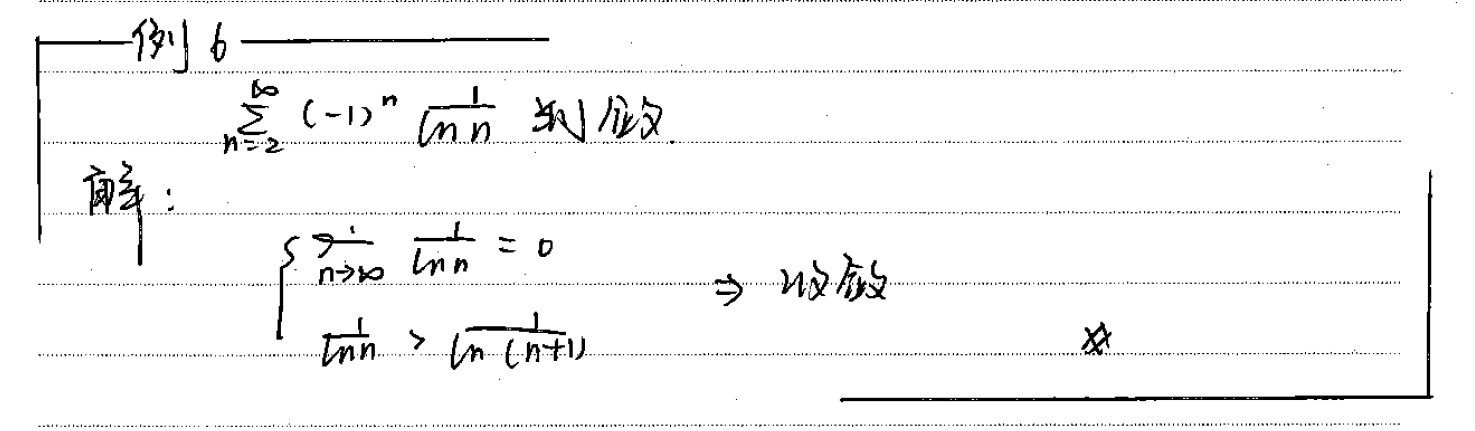 例 6
$\sum_{n=2}^{\infty} (-1)^n \frac{1}{\ln n}$ 判敛.
解:
$\begin{cases} \lim_{n \to \infty} \frac{1}{\ln n} = 0 \\ \frac{1}{\ln n} > \frac{1}{\ln (n+1)} \end{cases} \Rightarrow$ 收敛
※